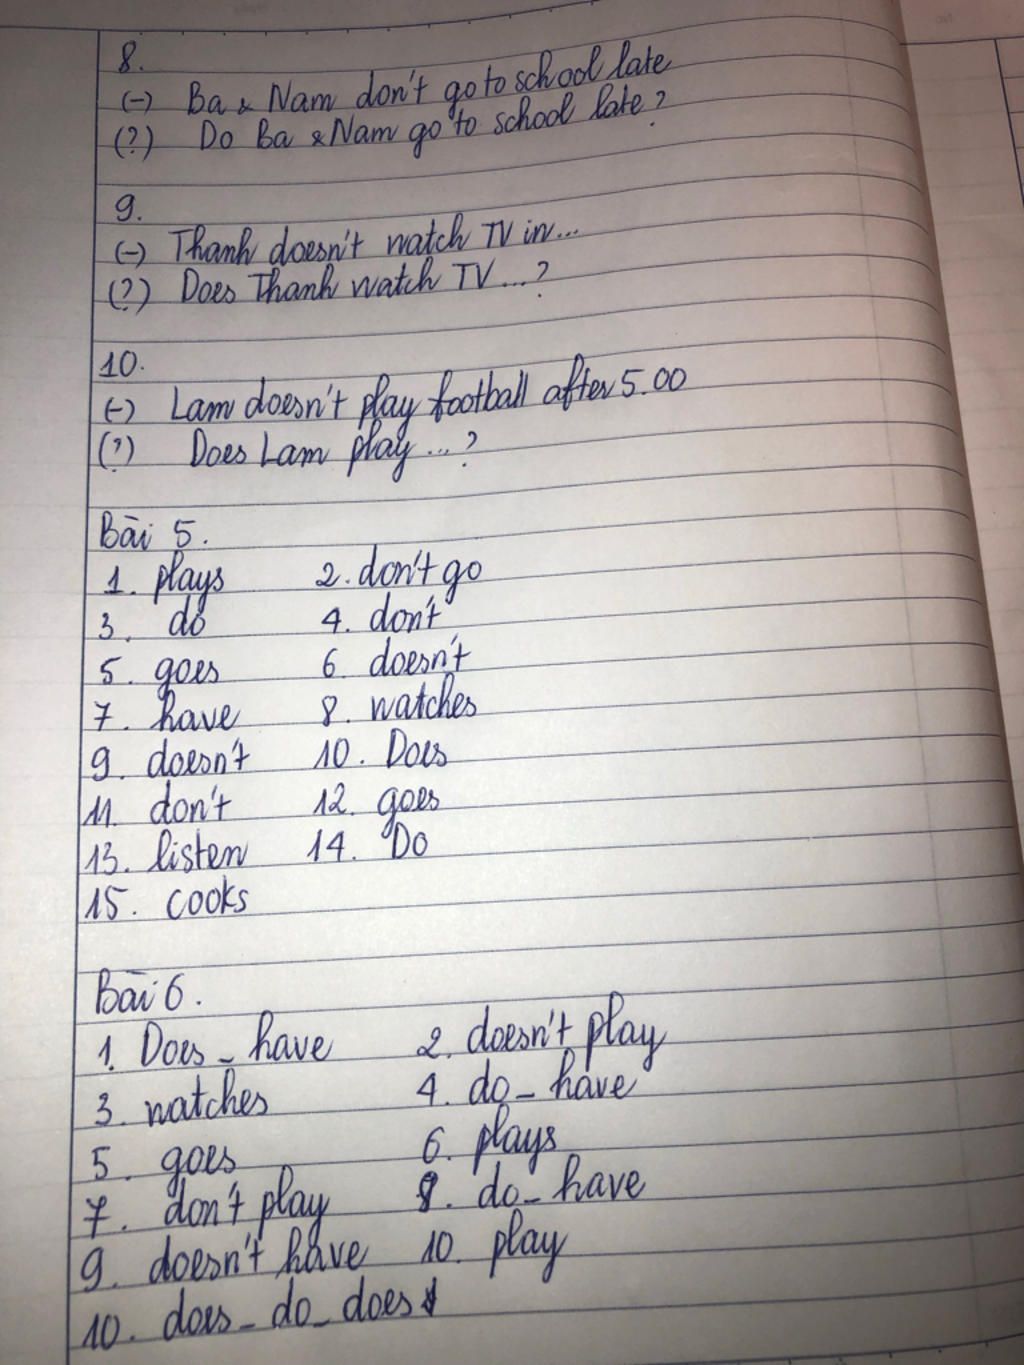 8.
(-) Ba & Nam don't go to school late
(?) Do Ba & Nam go to school late?
9.
(-) Thanh doesn't watch TV in...
(?) Does Thanh watch TV ...?
10.
(-) Lam doesn't play football after 5.00
(?) Does Lam play ...?
Bài 5.
1. plays 2. don't go
3. do 4. don't
5. goes 6. doesn't
7. have 8. watches
9. doesn't 10. Does
11. don't 12. goes
13. listen 14. Do
15. cooks
Bài 6.
1. Does _ have 2. doesn't play
3. watches 4. do _ have
5. goes 6. plays
7. don't play 8. do _ have
9. doesn't have 10. play
10. does _ do _ does